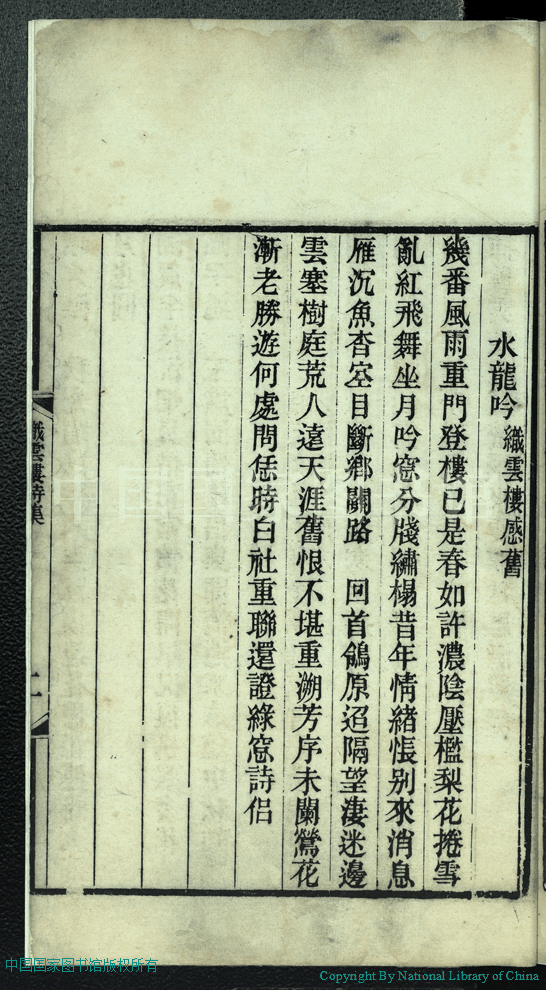 水龍吟 織雲樓感舊
幾番風雨重門登樓已是春如許濃陰壓檻梨花捲雪
亂紅飛舞坐月吟窓分牋繡榻昔年情緒悵别來消息
雁沉魚杳空目斷鄉關路 回首鴒原迢隔望淒迷邊
雲塞樹庭荒人遠天涯舊恨不堪重溯芳序未闌鶯花
漸老勝遊何處問恁時白社重聯還證綠窓詩侣
織雲樓詩集
二
中国国家图书馆版权所有
Copyright By National Library of China